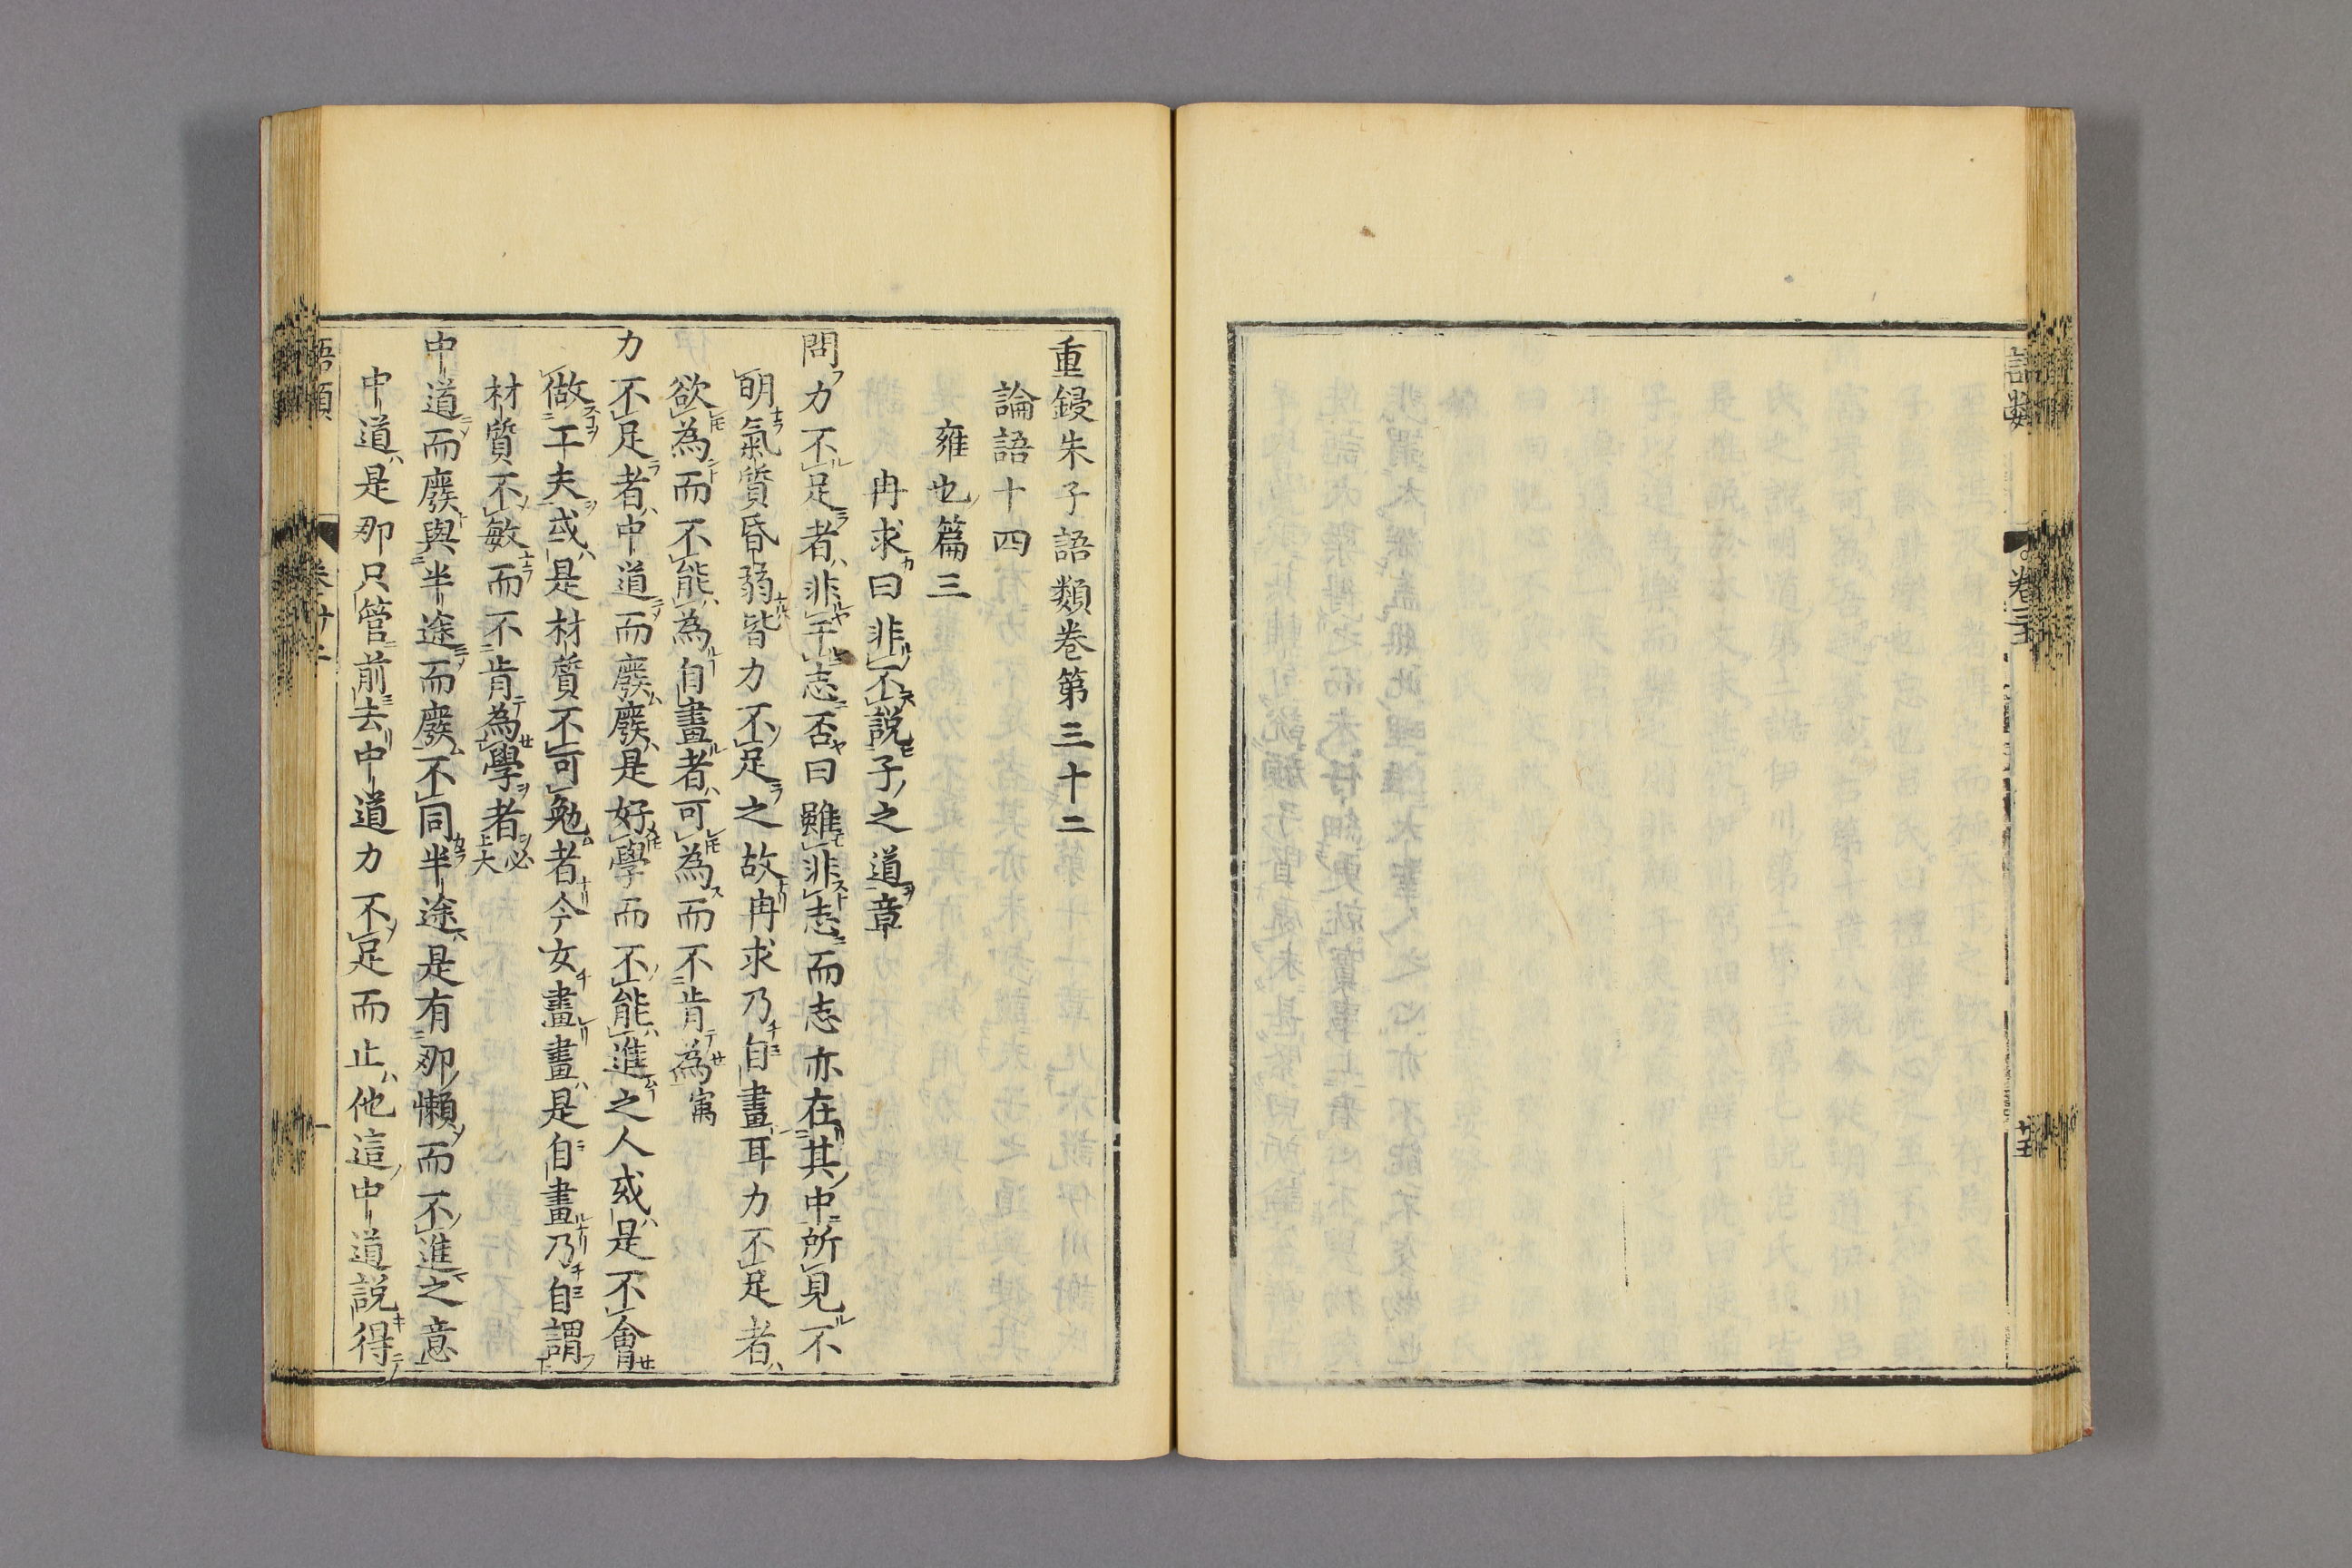 重鋟朱子語類卷第三十二
論語十四
雍也篇三
冉求曰非不説子之道章
問力不足者非干志否曰雖非志而志亦在其中所見不
明氣質昏弱皆力不足之故冉求乃自畫耳力不足者
欲為而不能為自畫者可為而不肯為寓
力不足者中道而廢廢是好學而不能進之人或是不會
做工夫或是材質不可勉者今女畫畫是自畫乃自謂
材質不敏而不肯為學者必大
中道而廢與半途而廢不同半途是有那懶而不進之意
中道是那只管前去中道力不足而止他這中道説得
語類